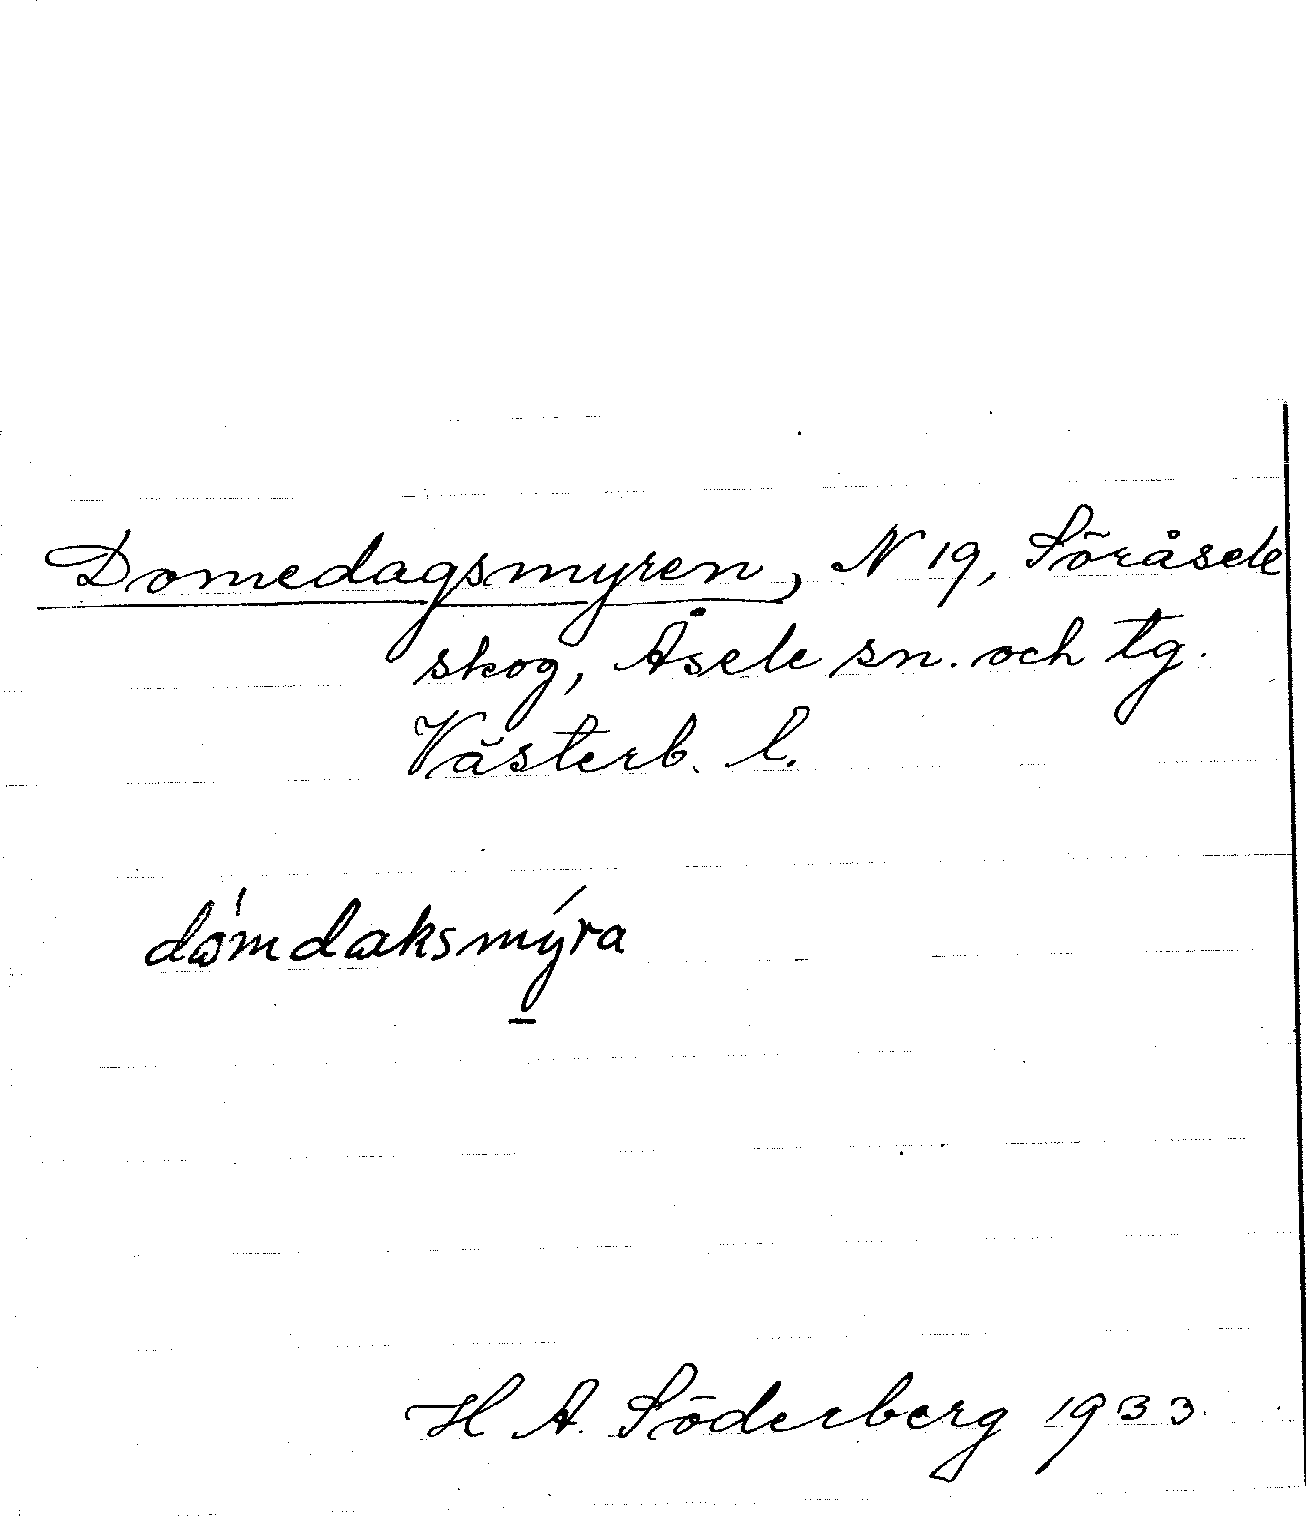 Domedagsmyren, N 19, Söråsele
skog, Åsele sn. och tg.
Västerb. l.
dωmdaksmýra
H A. Söderberg 1933.